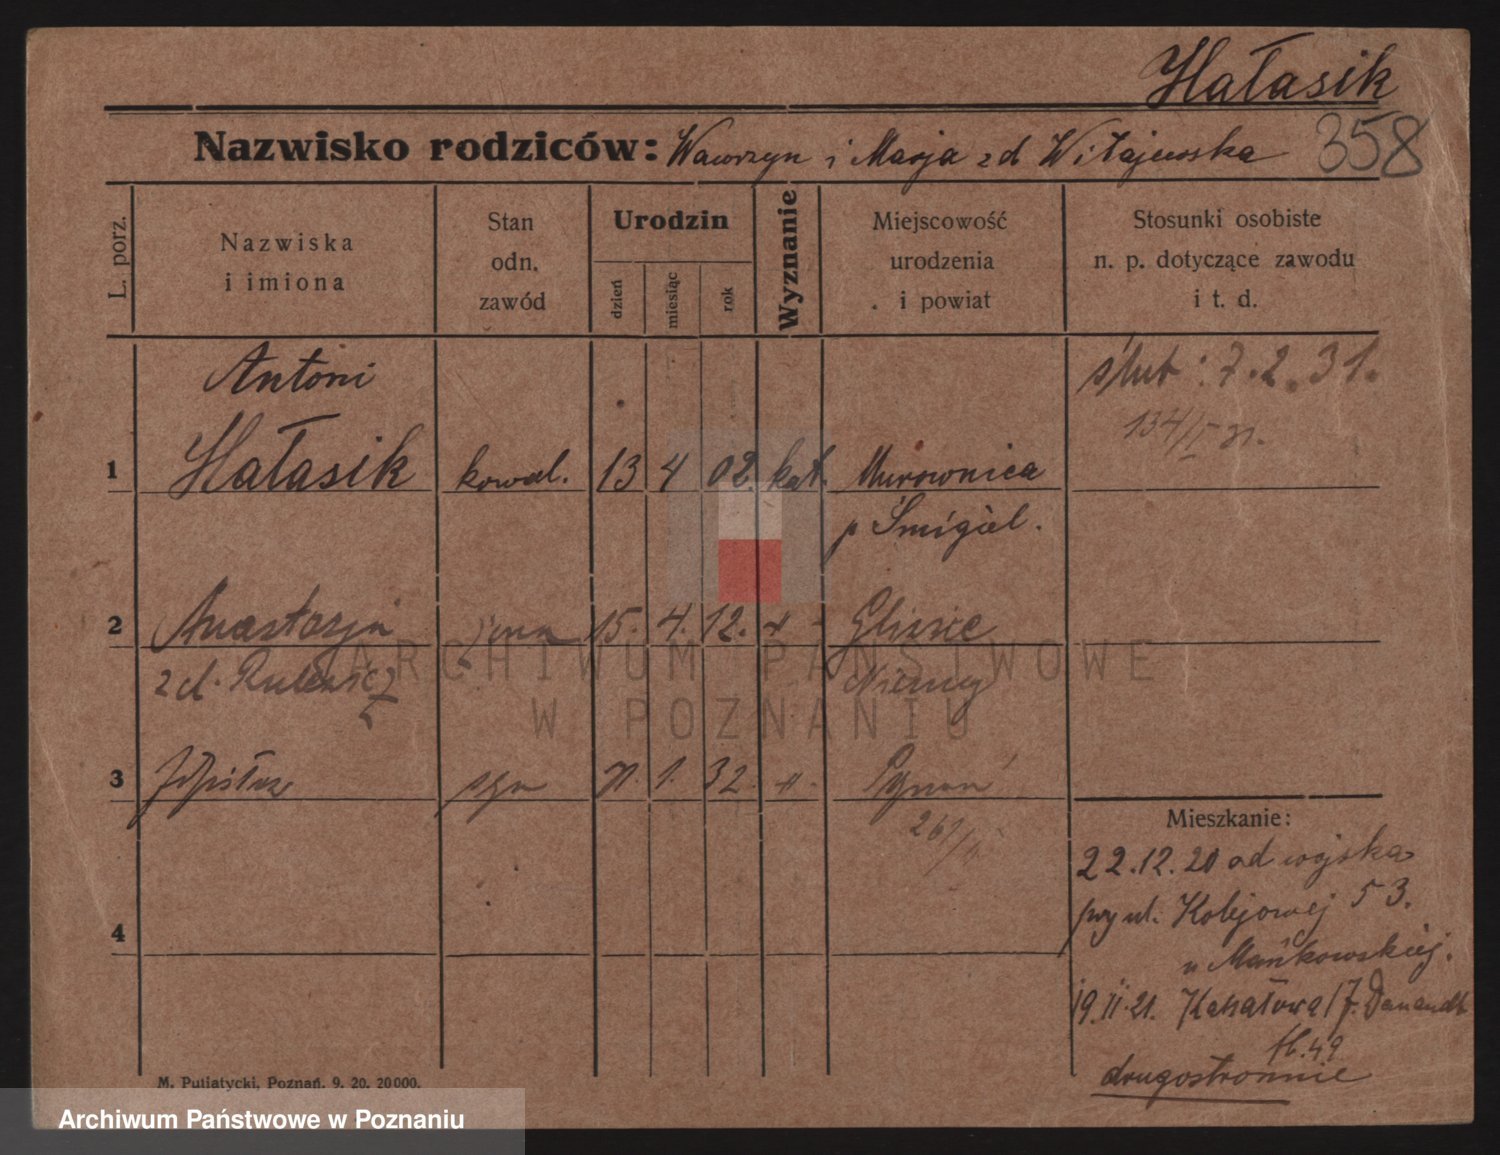 Hałasik
358
Nazwisko rodziców: Wawrzyn i Marja zd Witajewska
L. porz.
Nazwiska i imiona
Stan odn. zawód
Urodzin
dzień
miesiąc
rok
Wyznanie
Miejscowość urodzenia i powiat
Stosunki osobiste n. p. dotyczące zawodu i t. d.
1
Antoni
Hałasik kowal. 13 4 02. kat. Murownica
p Śmigiel.
ślub: 7.2.31.
2 Anastazja żona 15. 4. 12.
zd.
Niemcy
3 syn 1. 32.
4
Mieszkanie:
22.12.20 od wojska
przy ul. Kolejowej 53.
u Mańkowskiej.
19.II.21.
drugostronnie
M. Putiatycki, Poznań. 9. 20. 20000.
ARCHIWUM PAŃSTWOWE
W POZNANIU
Archiwum Państwowe w Poznaniu